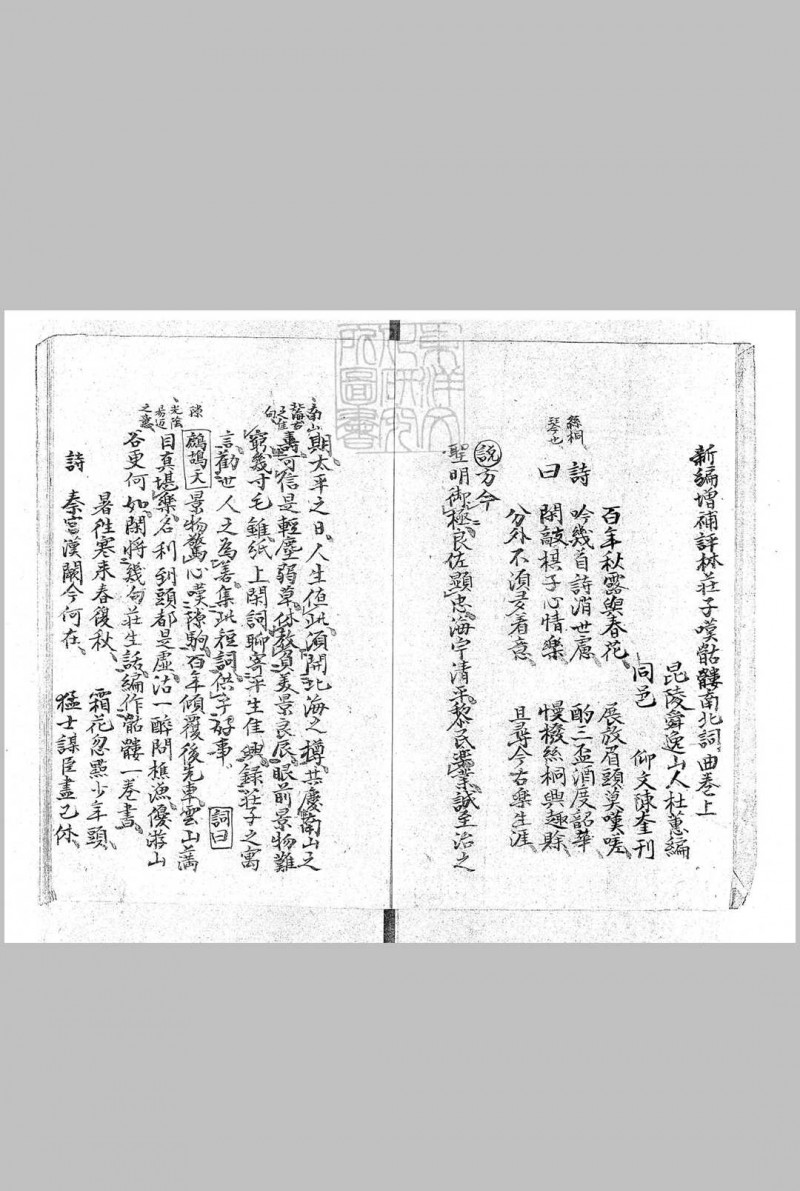 新編增補評林莊子嘆骷髏南北詞曲卷上
昆陵舜逸山人杜蕙編
同邑 仰文陳奎刊
百年秋露與春花 展放眉頭莫嘆嗟
詩 吟幾首詩消世慮 酌三盃酒度韶華
曰 閑敲棋子心情樂 慢撥絲桐興趣賒
絲桐
琴也
分外不須多着意 且尋今古樂生涯
說 方今
聖明御極良佐顯忠海宇清平黎民樂業誠至治之
期太平之日人生值此須開北海之樽共慶南山之
南山
壽可信是輕塵弱草休教負美景良辰眼前景物難
窮幾寸毛錐紙上閑詞聊寄平生佳興錄莊子之寓
言勸世人之為善集此短詞供子好事 詞曰
鷓鴣天 景物驚心嘆隙駒百年傾覆後先車雲山滿
隙
目真堪樂名利到頭都是虛沽一醉問樵漁優游山
光陰
易迈
之意
谷更何如閑將幾句莊生話編作骷髏一卷書
詩 暑徃寒来春復秋 霜花忽點少年頭
秦宮漢闕今何在 猛士謀臣盡已休